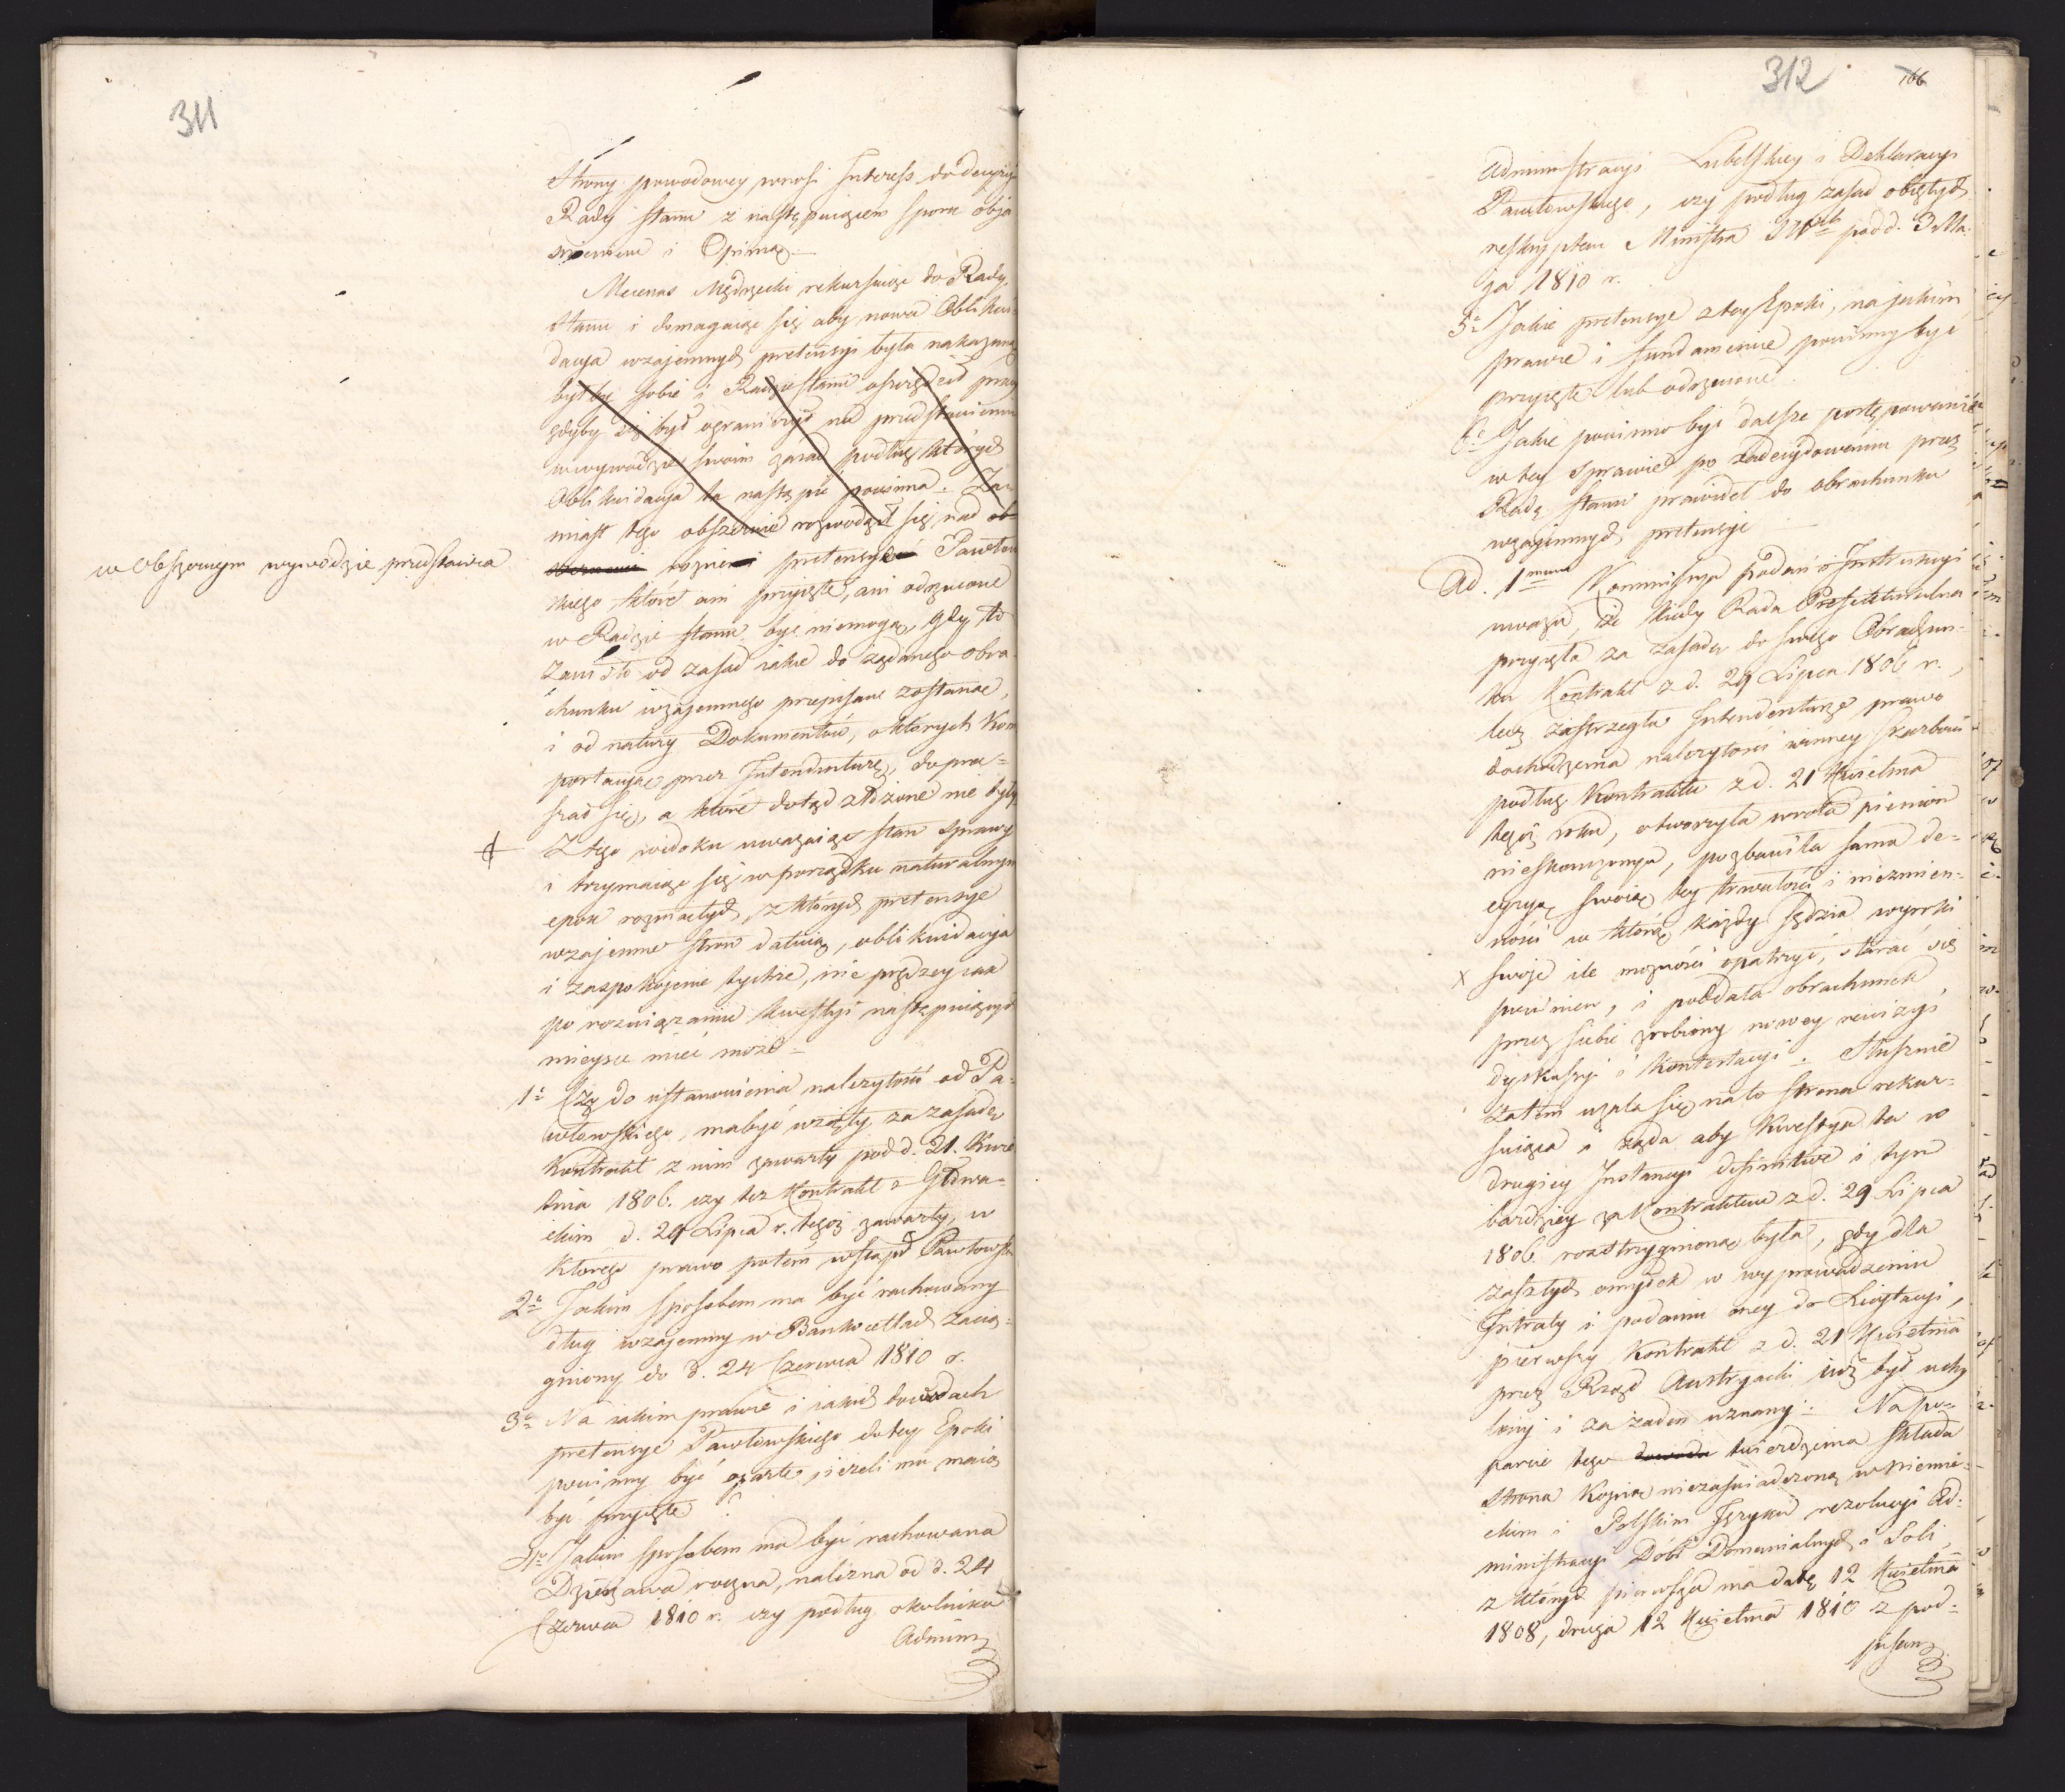 311
Strony powodowey wnosi Interess do decyzyi
Rady Stanu z następuiącem sporu obja
śnieniem i Opinią.
Mecenas Mędrzecki rekursuiąc do Rady
Stanu i domagaiąc się aby nowa Oblikwi
dacya wzajemnych pretensyi była nakazaną
byłby sobie i Radzie Stanu oszczędził pracy
gdyby się był ograniczył na przedstawieniu
w wywodzie swoim zasad podług których
Oblikwidacya ta nastąpić powinna. Za-
miast tego obszernie rozwodził się nad ob-
w obszernym wywodzie przedstawia
rożne pretensye Pawłow
skiego, które ani przyięte, ani odrzucone
w Radzie Stanu być niemogą, gdy to
zawisło od zasad iakie do żądanego obra-
chunku wzajemnego przepisane zostaną,
i od natury Dokumentów, o których kom
portacyą przez Intendenturę, dopra=
szał się, a które dotąd złożone nie były
Z tego widoku uważaiąc stan sprawy
i trzymaiąc się w porządku naturalnym
epok rozmaitych, z których pretensye
wzajemne stron datuią, oblikwidacya
i zaspokojenie tychże, nie prędzey iak
po rozwiązaniu kwestyi następuiących
mieysce mieć może =
1o Czy do ustanowienia należytości od Pa-
włowskiego, ma być wzięty za zasadę
Kontrakt z nim zawarty pod d. 21. Kwie
tnia 1806. czy też Kontrakt z Głowa=
ckim d. 29 Lipca r. tegoż zawarty, w
którego prawo potem wstąpił Pawłowski
2o Jakim sposobem ma być rachowany
dług wzajemny w Bankocetlach zacią=
gniony do d. 24 Czerwca 1810 r.
3o Na iakim prawie i iakich dowodach
pretensye Pawłowskiego do tey Epoki
powinny być oparte, ieżeli mu maią
być przyięte?
4o Jakim sposobem ma być rachowana
Dzierżawa roczna, należna od d. 24
Czerwca 1810 r. czy podług okolnika
Admini
312
166
Administracyi Lubelskiey i Deklaracyi
Pawłowskiego, czy podług zasad obiętych
reskryptem Ministra pod d. 3 Ma-
ja 1810 r.
5o Jakie pretensye z tey Epoki, na jakim
prawie i fundamencie powinny być
przyięte lub odrzucone.
6o Jakie powinno być dalsze postępowanie
w tey sprawie po zadecydowaniu przez
Radę Stanu prawideł do obrachunku
wzajemnych pretensyi
Ad. 1mum Kommissya podań i Instrukcyi
uważa, że kiedy Rada Prefekturalna
przyięła za zasadę do swego Obrachun-
ku Kontrakt z d. 29 Lipca 1806 r.,
lecz zastrzegła Intendenturze prawo
dochodzenia należytości winney Skarbowi
podług Kontraktu z d. 21 Kwietnia
tegoż roku, otworzyła wrota pieniom
nieskończonym, pozbawiła sama de=
cyzyą swoią tey trwałości i niezmien=
ności w którą każdy Sędzia wyroki
x swoje ile możności opatrzyć, starać się
powinien, i poddała obrachunek
przez siebie zrobiony nowey rewizyi
dyskussyi i Kontestacyi. Słusznie
zatem użala się na to strona rekur=
suiąca i żąda aby Kwestya ta w
drugiey Instancyi definitive i tym
bardziey za Kontraktem z d. 29 Lipca
1806. rozstrzygnioną była, gdy dla
zaszłych omyłek w wyprowadzeniu
Intraty i podaniu oney do Licytacyi,
pierwszy Kontrakt z d. 21 Kwietnia
przez Rząd Austryacki iuż był uchy
lony i za żaden uznany. Na po=
parcie tego twierdzenia składa
strona Kopią niezaświadczoną w Niemie=
ckim i Polskim Języku rezolucyi Ad=
ministracyi Dobr Domenialnych i Soli
z których pierwsza ma datę 12 Kwietnia
1808, druga 12 Kwietnia 1810 z pod=
pisem